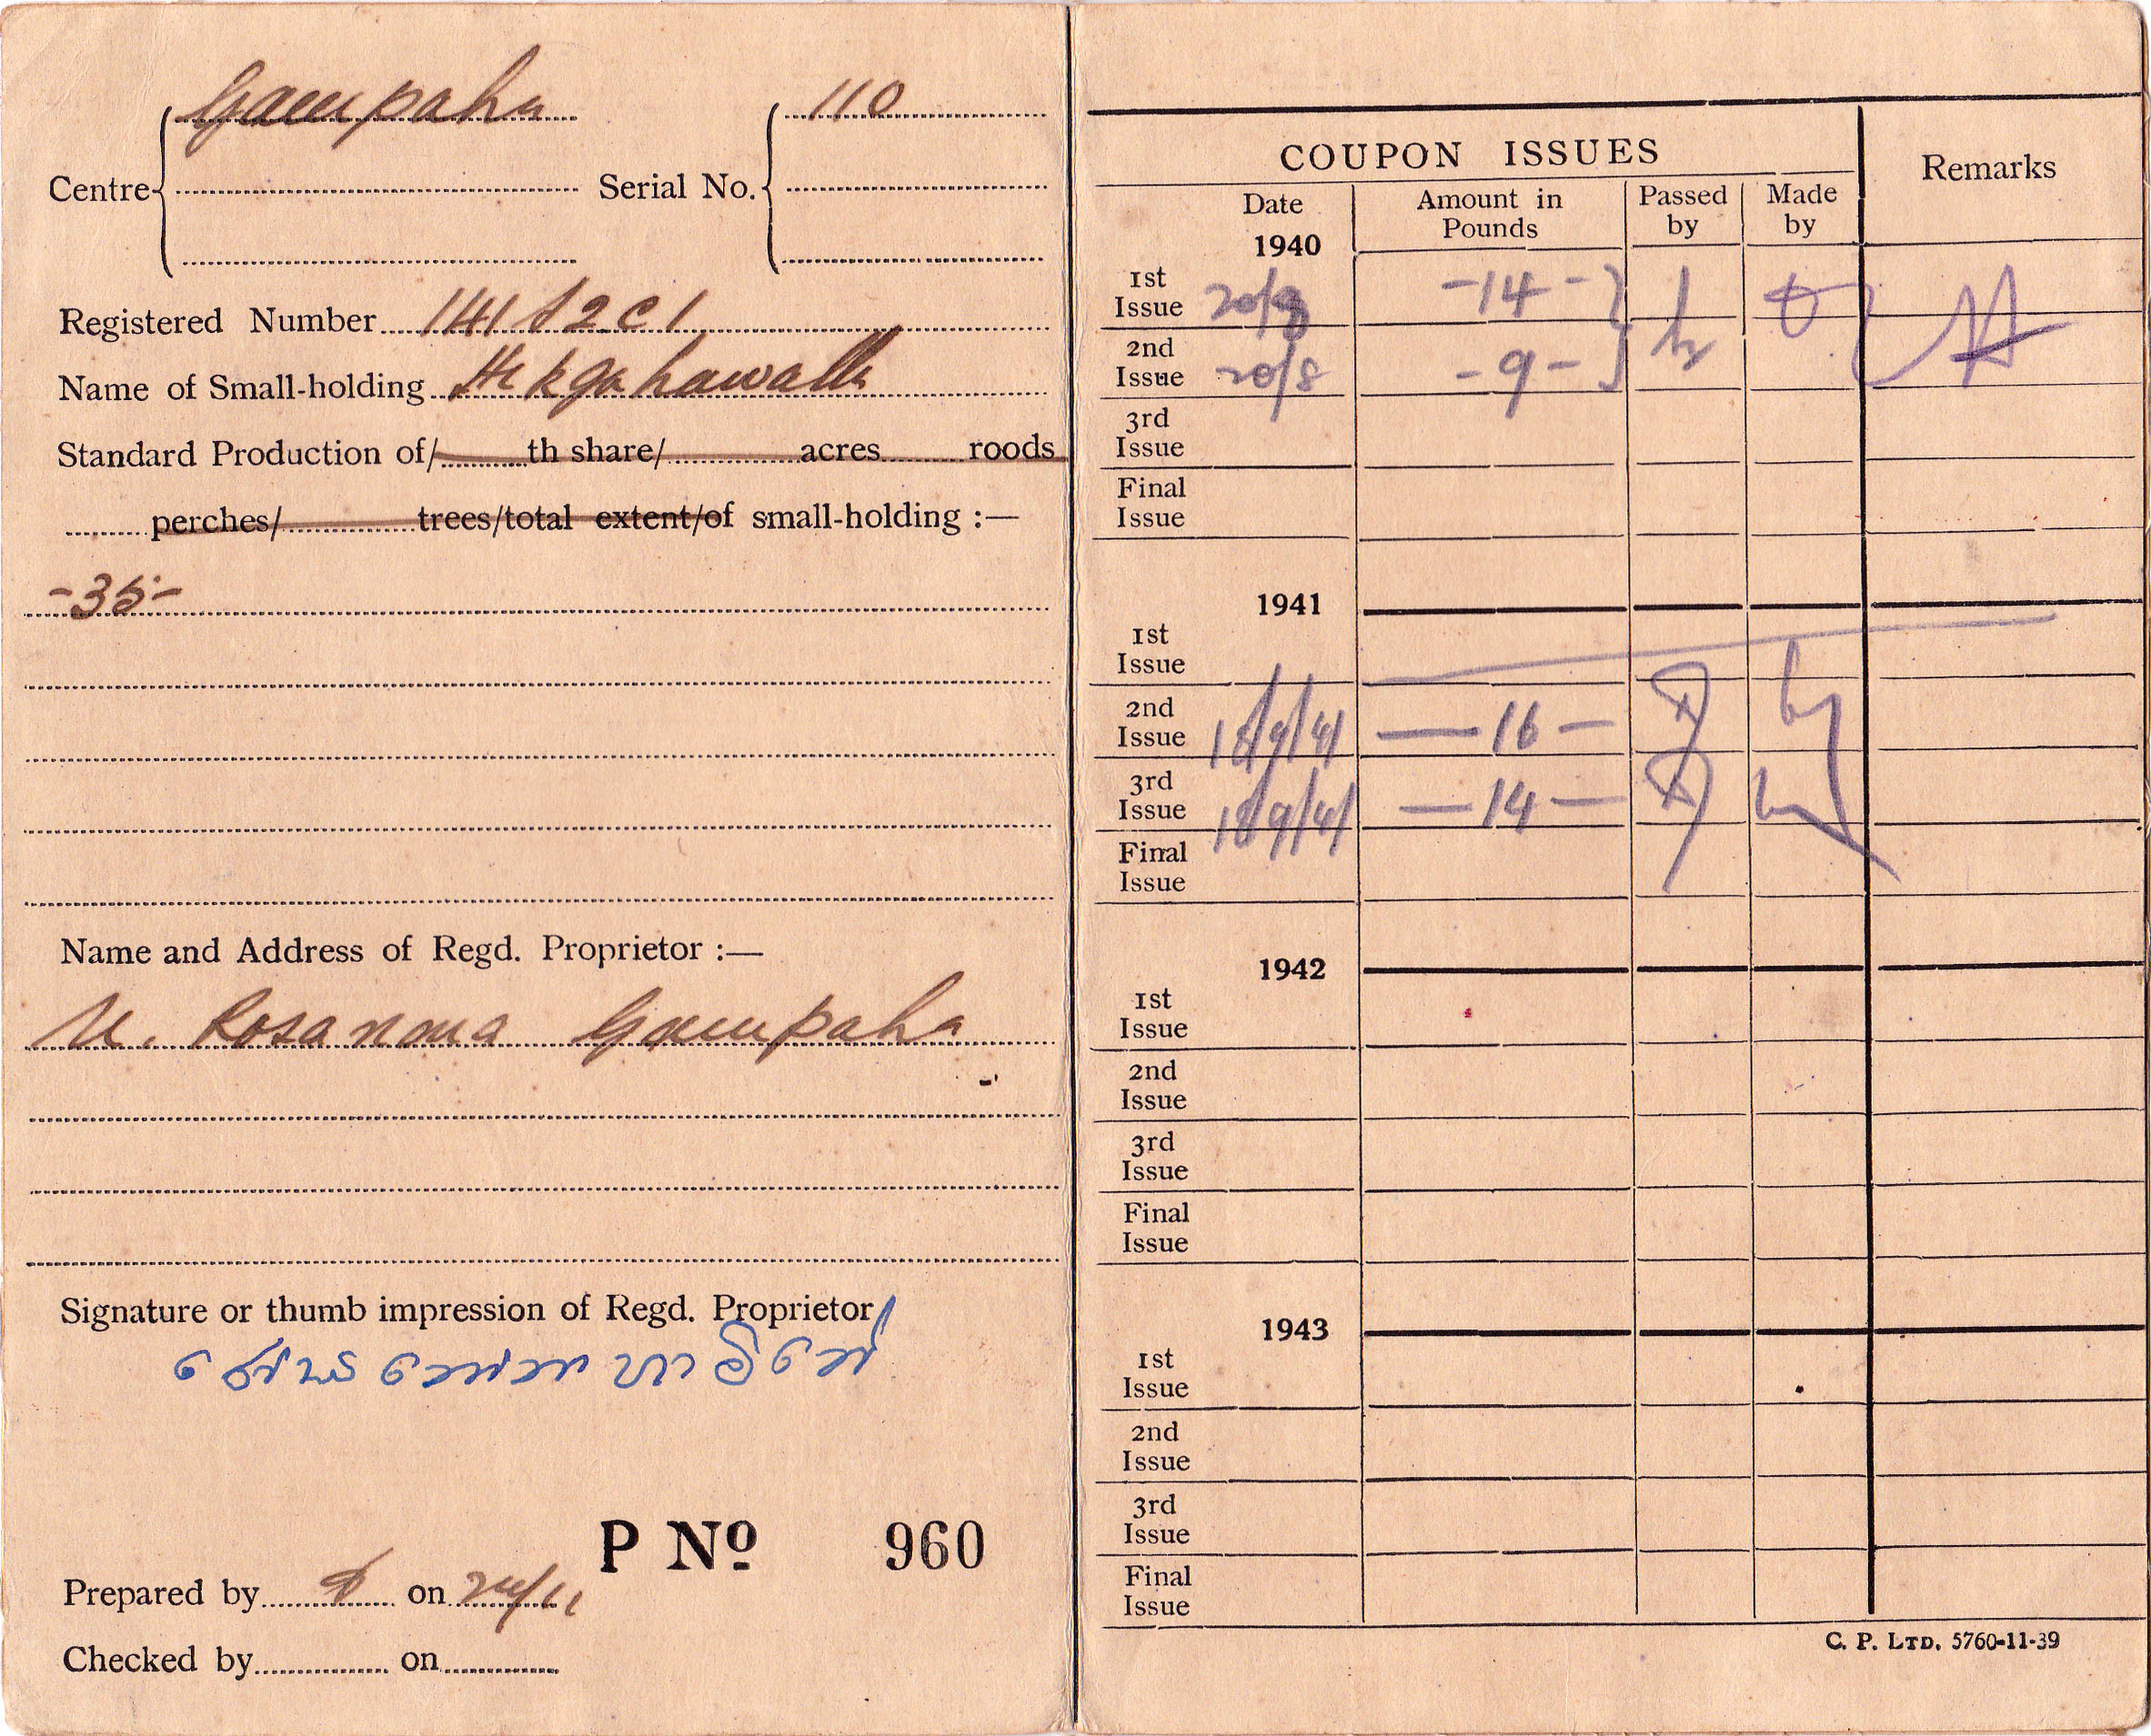 Gampaha
110
Centre
Serial No.
Registered Number 141 S2C1
Name of Small-holding
Standard Production of/ th share/ acres roods
perches/ trees/total extent/of small-holding :—
-35-
Name and Address of Regd. Proprietor :—
Gampaha
Signature or thumb impression of Regd. Proprietor
P Nº 960
Prepared by on
Checked by on
COUPON ISSUES
Remarks
Date
Amount in Pounds
Passed by
Made by
1940
1st Issue 20/8 -14-
2nd Issue 20/8 -9-
3rd Issue
Final Issue
1941
1st Issue
2nd Issue 18/9/41 —16—
3rd Issue 18/9/41 —14—
Final Issue
1942
1st Issue
2nd Issue
3rd Issue
Final Issue
1943
1st Issue
2nd Issue
3rd Issue
Final Issue
C. P. LTD. 5760-11-39